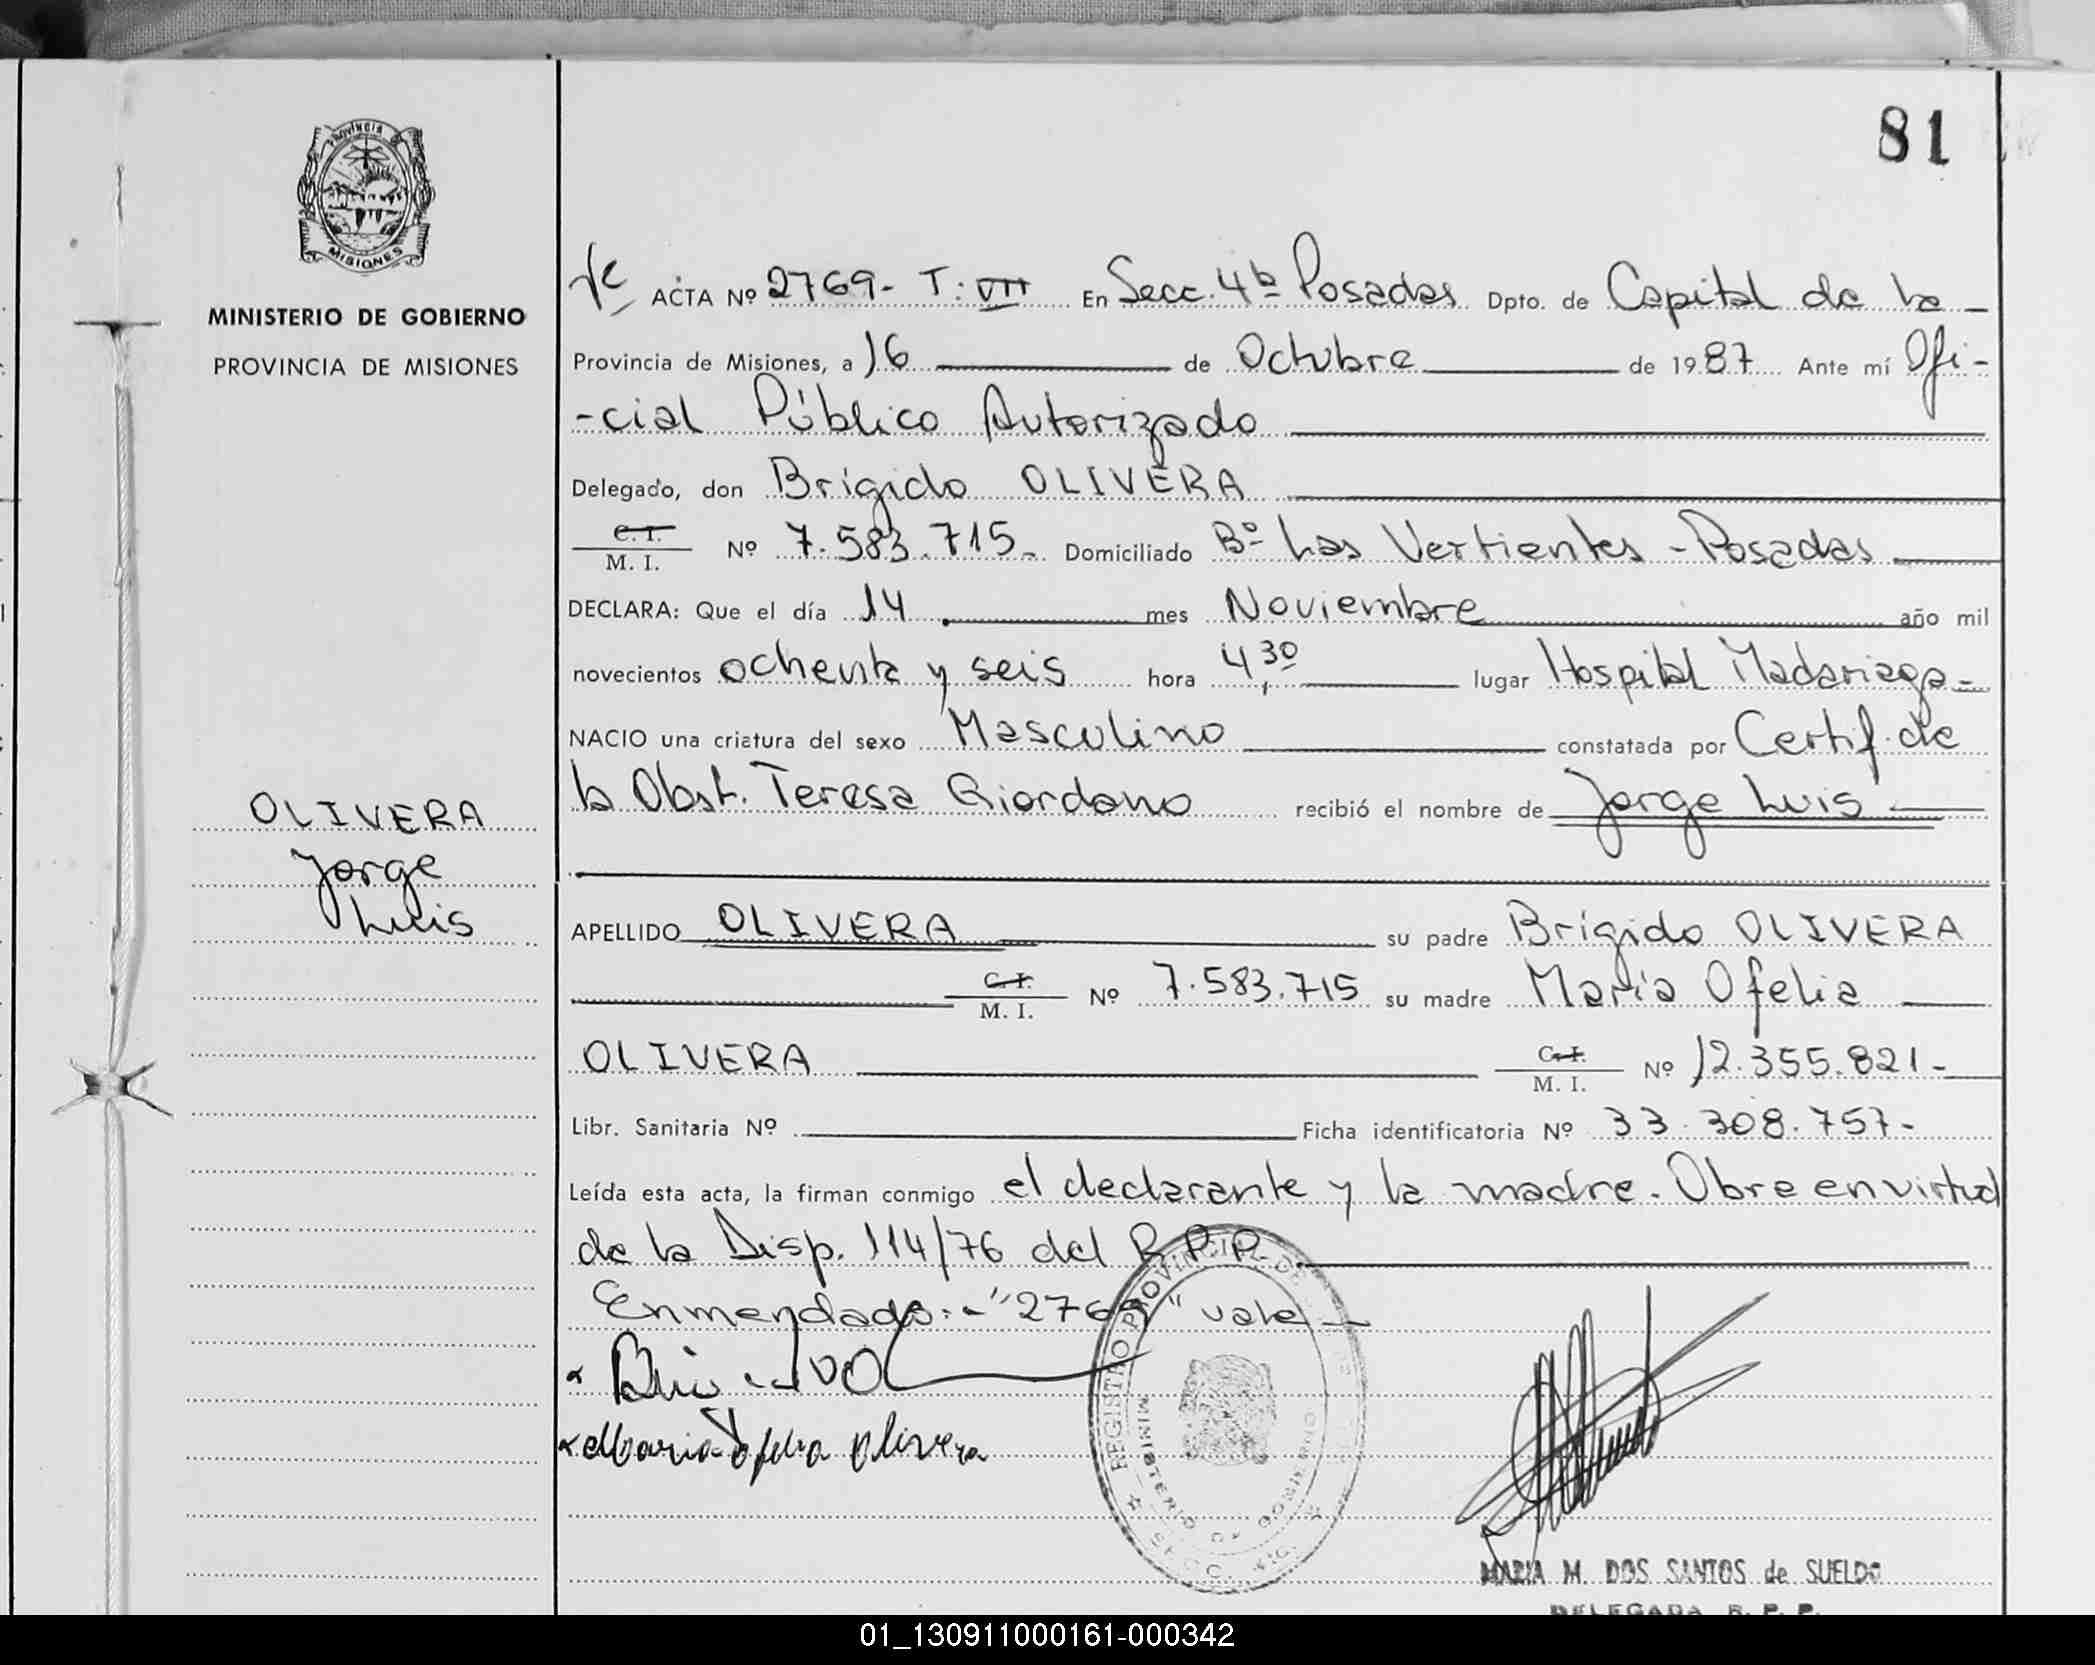 81
PROVINCIA
MISIONES
MINISTERIO DE GOBIERNO
PROVINCIA DE MISIONES
OLIVERA
Jorge
Luis
ACTA Nº 2769- T: VII En Secc. 4ta Posadas Dpto. de Capital de la
Provincia de Misiones, a 16 de Octubre de 1987 Ante mí Ofi-
-cial Público Autorizado
Delegado, don Brígido OLIVERA
C. I.
M. I. Nº 7.583.715- Domiciliado Bº Las Vertientes - Posadas
DECLARA: Que el día 14 mes Noviembre año mil
novecientos ochenta y seis hora 4,30 lugar Hospital Madariaga-
NACIO una criatura del sexo Masculino constatada por Certif. de
la Obst. Teresa Giordano recibió el nombre de Jorge Luis
APELLIDO OLIVERA su padre Brígido OLIVERA
C. I.
M. I. Nº 7.583.715 su madre María Ofelia
OLIVERA C. I.
M. I. Nº 12.355.821-
Libr. Sanitaria Nº Ficha identificatoria Nº 33.308.757-
Leída esta acta, la firman conmigo el declarante y la madre. Obra en virtud
de la Disp. 114/76 del R.P.P.
Enmendado:-"2769" vale
Maria Ofelia Olivera
REGISTRO PROVINCIAL DE
MINISTERIO DE GOBIERNO
MARIA M. DOS SANTOS de SUELDO
DELEGADA R. P. P.
01_130911000161-000342